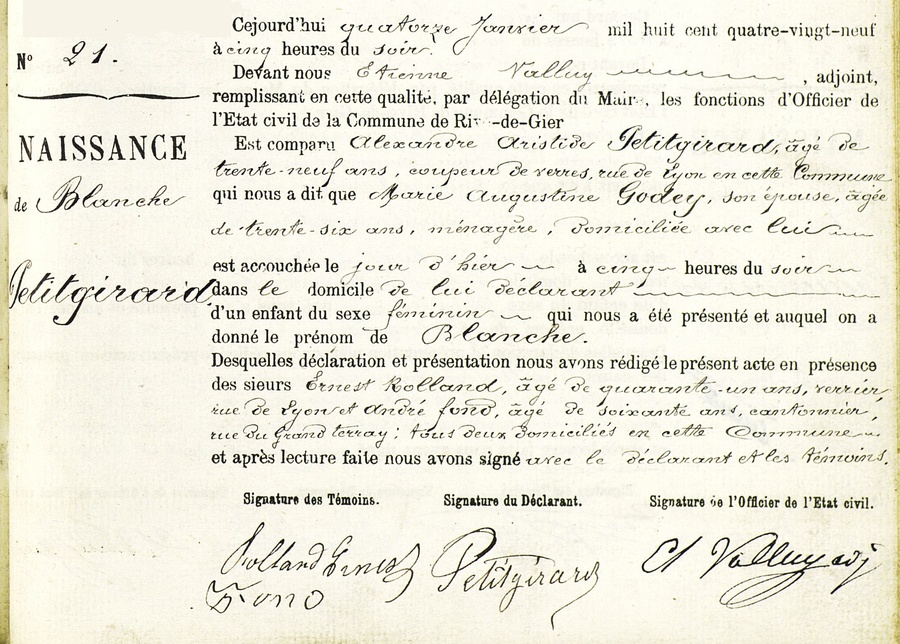 N° 21.
NAISSANCE
de Blanche
Petitgirard
Cejourd'hui quatorze Janvier mil huit cent quatre-vingt-neuf
à cinq heures du soir.
Devant nous Etienne Valluy, adjoint,
remplissant en cette qualité, par délégation du Maire, les fonctions d'Officier de
l'Etat civil de la Commune de Rive-de-Gier
Est comparu Alexandre Aristide Petitgirard, âgé de
trente-neuf ans, coupeur de verres, rue de Lyon en cette Commune
qui nous a dit que Marie Augustine Godey, son épouse, âgée
de trente-six ans, ménagère, domiciliée avec lui
est accouchée le jour d'hier à cinq heures du soir
dans le domicile de lui déclarant
d'un enfant du sexe féminin qui nous a été présenté et auquel on a
donné le prénom de Blanche.
Desquelles déclaration et présentation nous avons rédigé le présent acte en présence
des sieurs Ernest Rolland, âgé de quarante-un ans, verrier,
rue de Lyon et André fond, âgé de soixante ans, cantonnier,
rue du Grand terray; tous deux domiciliés en cette Commune
et après lecture faite nous avons signé avec le déclarant et les témoins.
Signature des Témoins. Signature du Déclarant. Signature de l'Officier de l'Etat civil.
Rolland Ernest Petitgirard Et Valluy adj
Fond